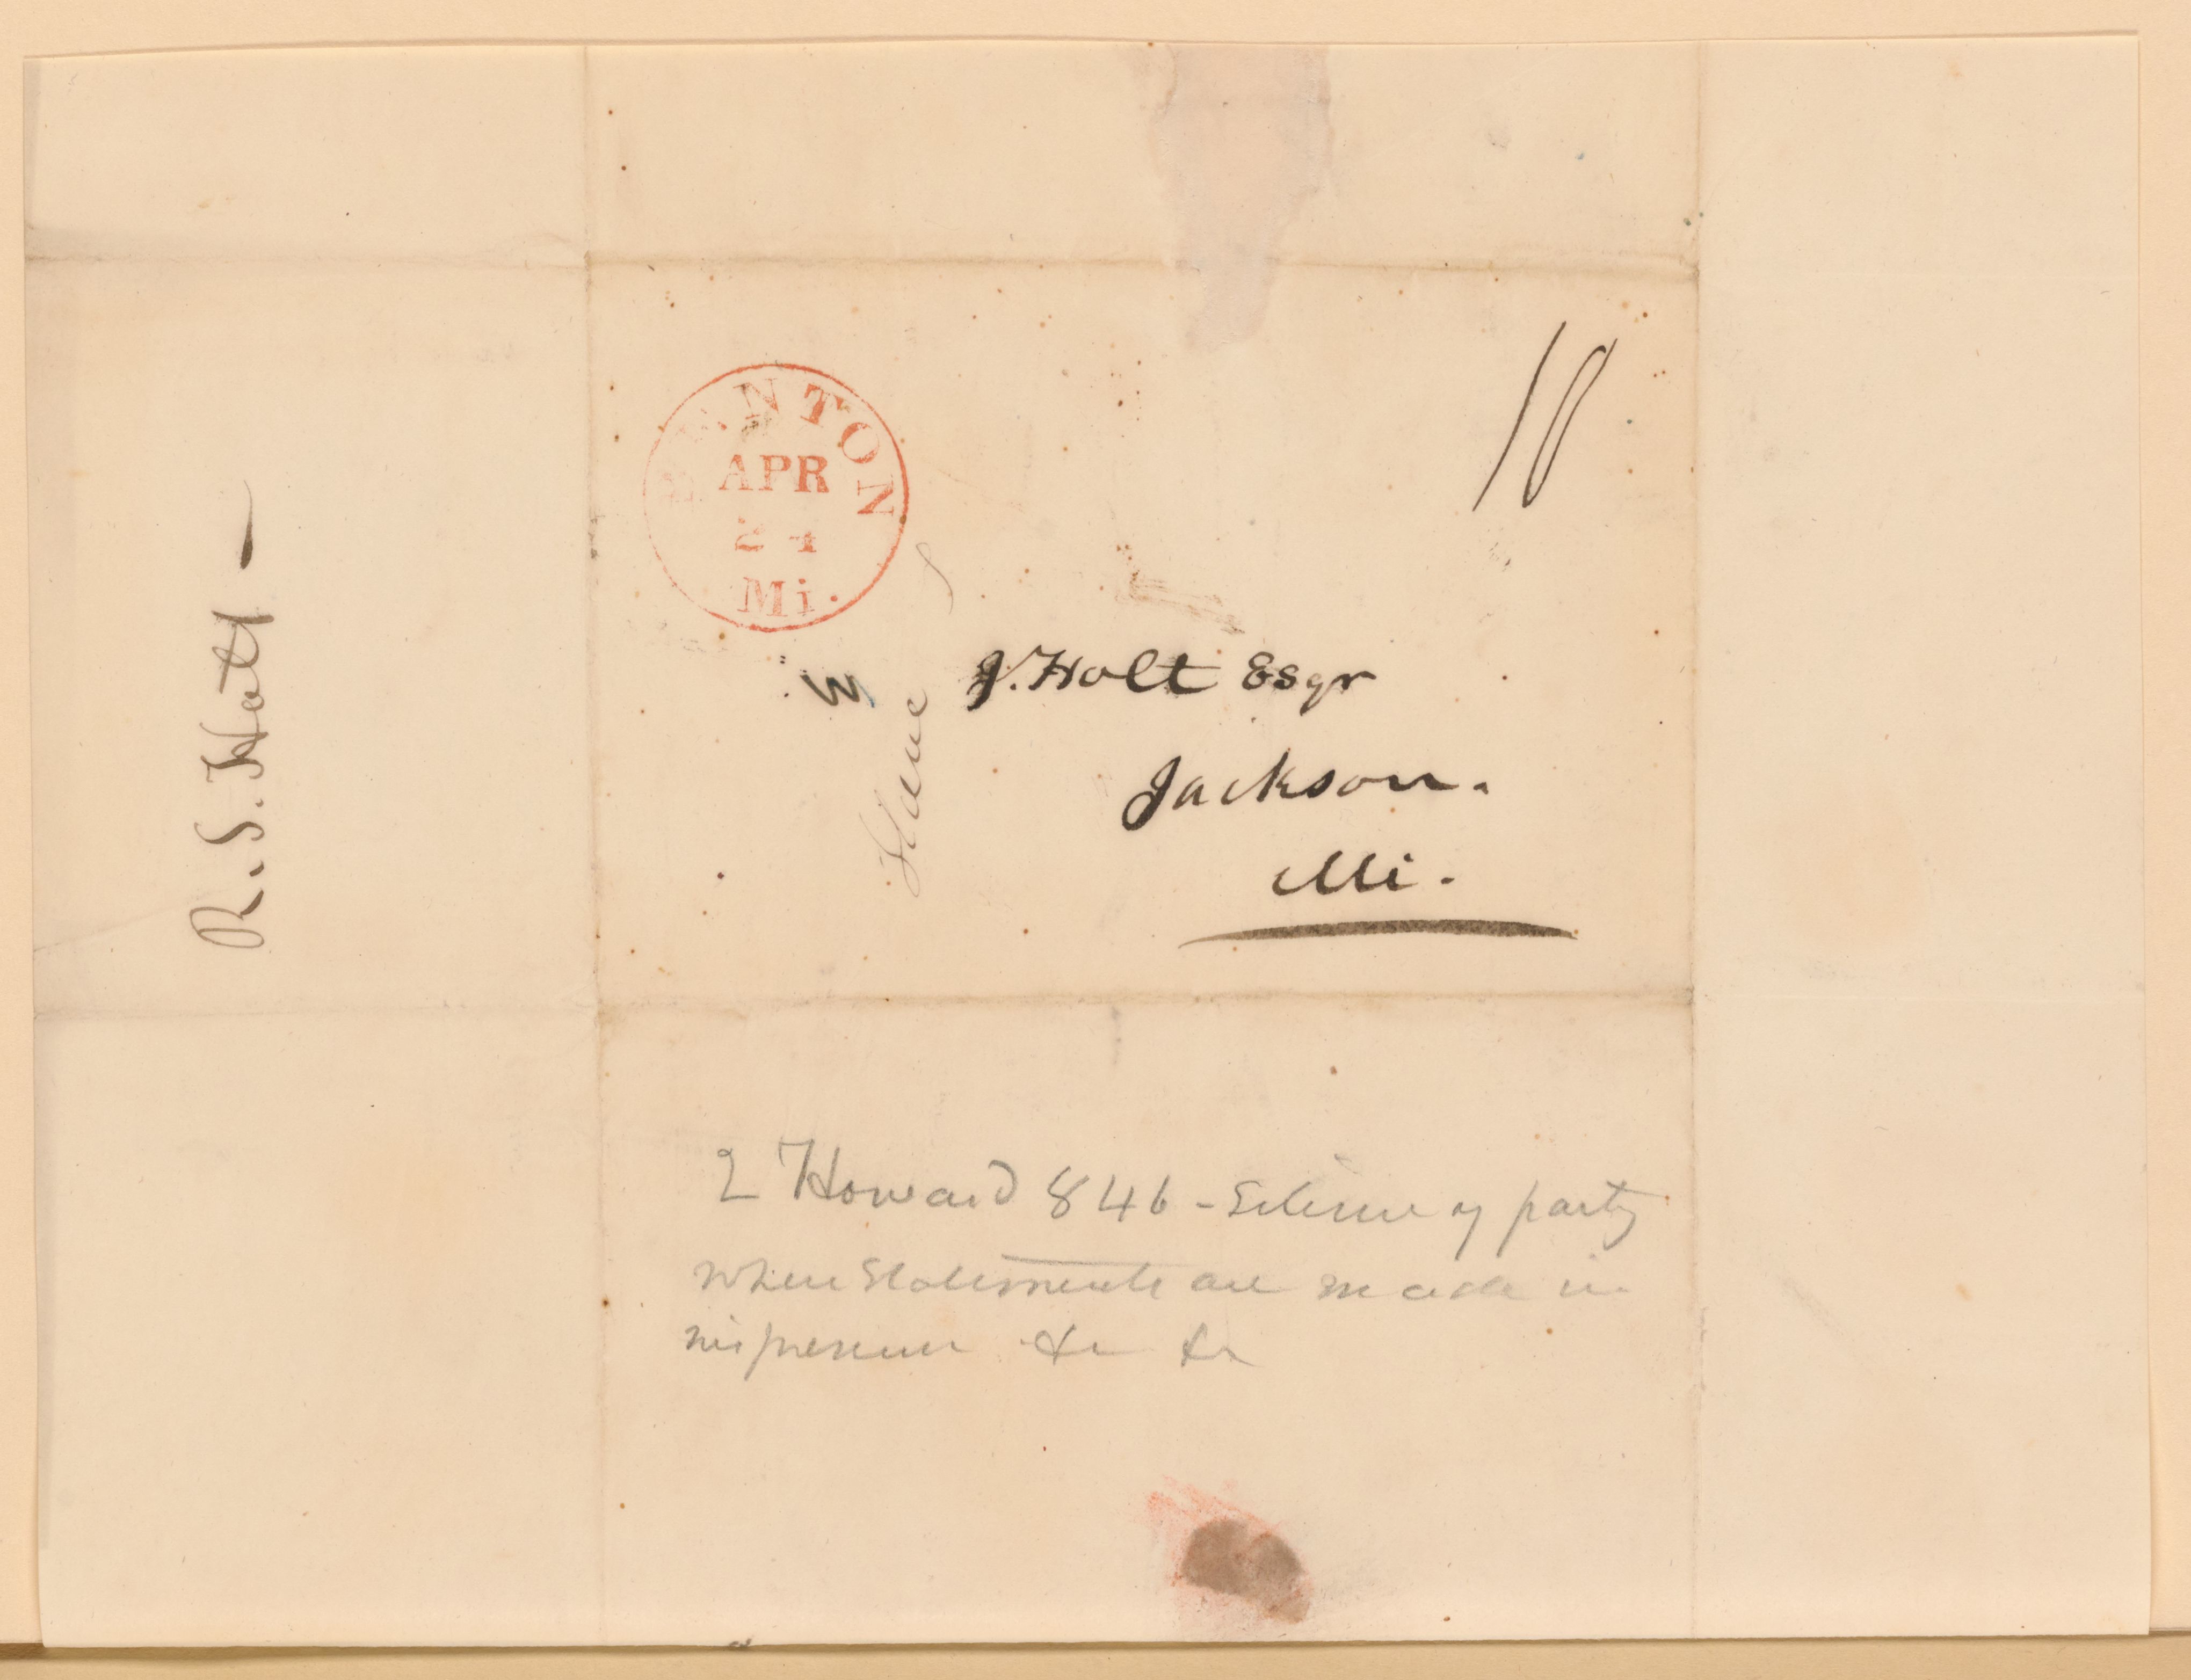 R. S. Holt —
BENTON
APR
24
Mi.
10
W J. Holt Esqr
Jackson.
Mi.
2 Howard 846 - Silence of party
when statements are made in
his presence &c &c